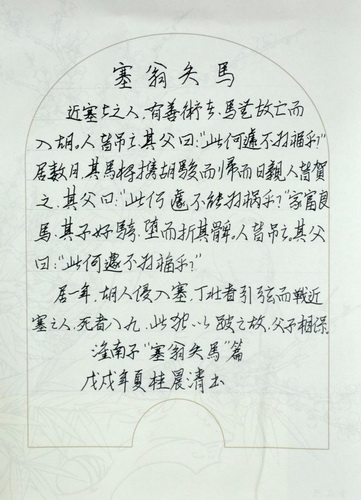 塞翁失馬
近塞上之人，有善術者，馬無故亡而
入胡。人皆吊之，其父曰：“此何遽不为福乎？”
居数月，其馬将携胡駿而帰而日，親人皆賀
之，其父曰：“此何遽不能为祸乎？”家富良
馬，其子好騎，墮而折其髀。人皆吊之。其父
曰：“此何遽不为福乎？”
居一年，胡人侵入塞，丁壮者引弦而戦近
塞之人，死者八九，此独以跛之故，父子相保。
淮南子“塞翁失馬”篇
戊戌年夏桂晨清书